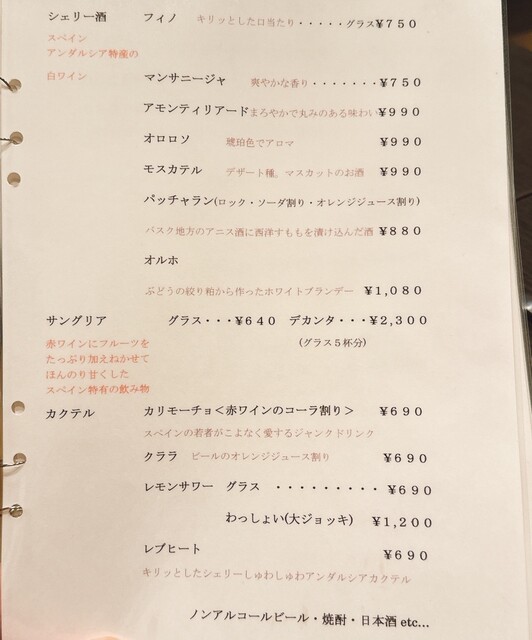 シェリー酒　フィノ　キリッとした口当たり・・・・・グラス¥７５０
スペイン
アンダルシア特産の
白ワイン　マンサニージャ　爽やかな香り・・・・・・・¥７５０
アモンティリアードまろやかで丸みのある味わい¥９９０
オロロソ　琥珀色でアロマ　¥９９０
モスカテル　デザート種。マスカットのお酒　¥９９０
パッチャラン(ロック・ソーダ割り・オレンジジュース割り)
バスク地方のアニス酒に西洋すももを漬け込んだ酒 ¥８８０
オルホ
ぶどうの絞り粕から作ったホワイトブランデー　¥１,０８０
サングリア　グラス・・・¥６４０　デカンタ・・・¥２,３００
赤ワインにフルーツを　(グラス５杯分)
たっぷり加えねかせて
ほんのり甘くした
スペイン特有の飲み物
カクテル　カリモーチョ＜赤ワインのコーラ割り＞　¥６９０
スペインの若者がこよなく愛するジャンクドリンク
クララ　ビールのオレンジジュース割り　¥６９０
レモンサワー　グラス　・・・・・・・・・　¥６９０
わっしょい(大ジョッキ)　¥１,２００
レブヒート　¥６９０
キリッとしたシェリーしゅわしゅわアンダルシアカクテル
ノンアルコールビール・焼酎・日本酒 etc...